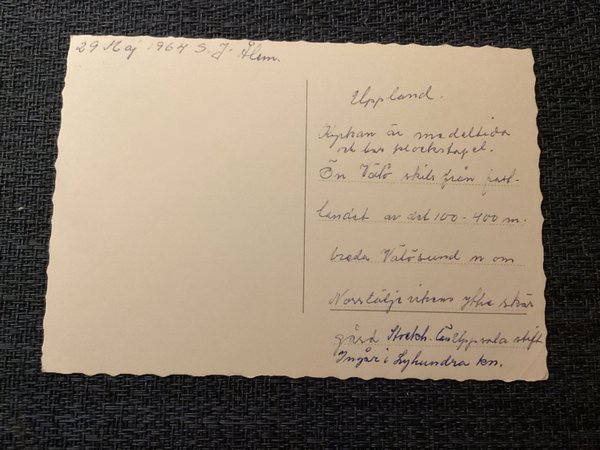 29 Maj 1964 S. J. Ålem.
Uppland.
Kyrkan är medeltida
och har klockstapel.
Ön Vätö skils från fast-
landet av det 100-400 m.
breda Vätösund n om
Norrtäljevikens yttre skär
gård Stockh. län Uppsala stift
Ingår i Lyhundra kn.